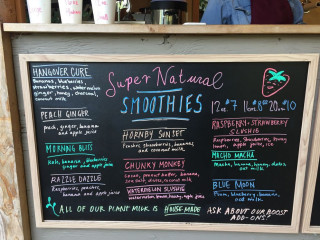 HANGOVER CURE
Bananas, blueberries
strawberries, watermelon
ginger, honey, charcoal,
coconut milk
PEACH GINGER
peach, ginger, banana
and apple juice
MORNING BLISS
Kale, banana, blueberries
ginger and apple juice
RAZZLE DAZZLE
Raspberries, peaches,
banana and apple juice
Super Natural
SMOOTHIES
HORNBY SUNSET
Peaches, strawberries, bananas,
and coconut milk
CHUNKY MONKEY
Cacao, peanut butter, banana,
sea salt, dates, coconut milk
WATERMELON SLUSHIE
watermelon, lemon, honey, apple juice
12oz $7 16oz $8 20oz $10
RASPBERRY-STRAWBERRY
SLUSHIE
Raspberries, Strawberries, honey
lemon, apple juice, ice
MACHO MACHA
Matcha, banana, honey, dates,
oat milk
BLUE MOON
blueberry, banana,
oat milk
ALL OF OUR PLANT MILK IS HOUSE MADE
ASK ABOUT OUR BOOST
ADD-ONS!